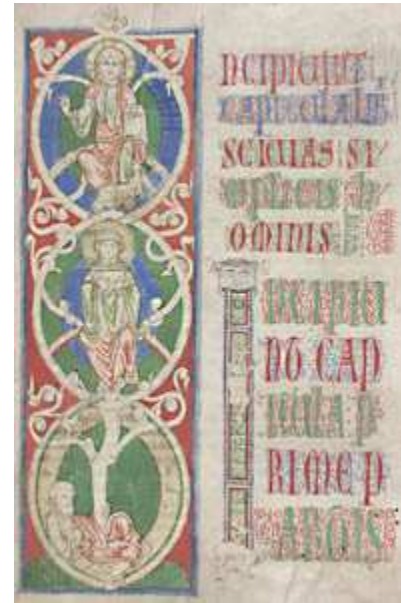 NCIPIUNT
CAPITULA LIB
SCIUIAS SI
MPLICIS H
OMINIS
INCIPIU
NT CAP
ITULA P
RIME P
ARTIS